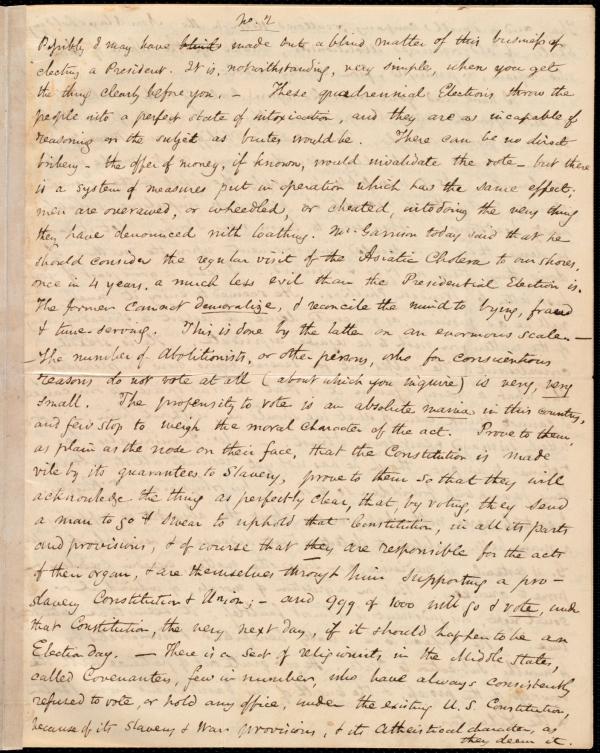 No. 2
Possibly I may have blind made but a blind matter of this business of
electing a President. It is, notwithstanding, very simple, when you get
the thing clearly before you. – These quadrennial Elections throw the
people into a perfect state of intoxication, and they are as incapable of
reasoning on the subject as brutes would be. There can be no direct
bribery – the offer of money, if known, would invalidate the vote – but there
is a system of measures put in operation which has the same effect;
men are overawed, or wheedled, or cheated, into doing the very thing
they have denounced with loathing. Mr. Garrison today said that he
should consider the regular visit of the Asiatic Cholera to our shores,
once in 4 years, a much less evil than the Presidential Election is.
The former cannot demoralize, & reconcile the mind to lying, fraud
& time-serving. This is done by the latter on an enormous scale. –
– The number of Abolitionists, or other persons, who for conscientious
reasons do not vote at all (about which you inquire) is very, very
small. The propensity to vote is an absolute mania in this country,
and few stop to weigh the moral character of the act. Prove to them,
as plain as the nose on their face, that the Constitution is made
vile by its guarantees to Slavery, prove to them so that they will
acknowledge the thing as perfectly clear, that, by voting, they send
a man to go & swear to uphold that Constitution, in all its parts
and provisions, & of course that they are responsible for the acts
of their organ, & are themselves through him supporting a pro-
slavery Constitution & Union; – and 999 of 1000 will go & vote, under
that Constitution, the very next day, if it should happen to be an
Election day. – There is a sect of religionists, in the Middle States,
called Covenanters, few in number, who have always consistently
refused to vote, or hold any office, under the existing U.S. Constitution,
because of its Slavery & War provisions, & its Atheistical character, as
they deem it.